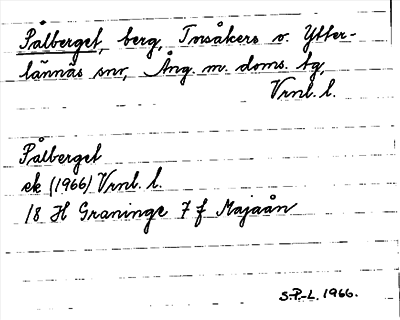 Pålberget, berg, Torsåkers o. Ytter-
lännäs snr, Ång. m. doms. tg,
Vrnl. l.
Pålberget
ek (1966) Vrnl. l.
18 H Graninge 7 f Majaån
S.P.-L. 1966.